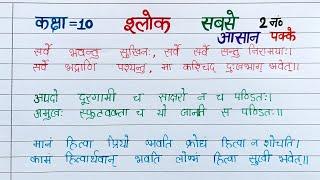 कक्षा = 10 श्लोक सबसे 2 नं०
आसान पक्के
सर्वे भवन्तु सुखिनः, सर्वे सर्वे सन्तु निरामयाः।
सर्वे भद्राणि पश्यन्तु, मा कश्चिद् दुःखभाग् भवेत्॥
अपदो दूरगामी च साक्षरो न च पण्डितः।
अमुखः स्फुटवक्ता च यो जानाति स पण्डितः॥
मानं हित्वा प्रियो भवति क्रोधं हित्वा न शोचति।
कामं हित्वार्थवान् भवति लोभं हित्वा सुखी भवेत्॥